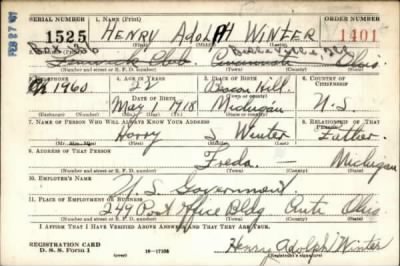 SERIAL NUMBER 1. NAME (Print) ORDER NUMBER
1525 HENRY ADOLPH WINTER 1401
(First) (Middle) (Last)
FEB 27 '41
Box 236
Fenwick Club. Cincinnati Ohio.
(Number and street or R. F. D. number) (Town) (County) (State)
3. TELEPHONE 4. AGE IN YEARS 5. PLACE OF BIRTH 6. COUNTRY OF CITIZENSHIP
1960 22 Bacon Hill.
DATE OF BIRTH
May 1 1918 Michigan U.S.
(Mo.) (Day) (Yr.) (State or country)
7. NAME OF PERSON WHO WILL ALWAYS KNOW YOUR ADDRESS 8. RELATIONSHIP OF THAT PERSON
Harry S Winter Father.
(Mr. Mrs. Miss) (First) (Middle) (Last)
9. ADDRESS OF THAT PERSON
Freda — Michigan
(Number and street or R. F. D. number) (Town) (County) (State)
10. EMPLOYER'S NAME
U.S. Government.
11. PLACE OF EMPLOYMENT OR BUSINESS
249 Post Office Bldg Ohio.
(Number and street or R. F. D. number) (Town) (County) (State)
I AFFIRM THAT I HAVE VERIFIED ABOVE ANSWERS AND THAT THEY ARE TRUE.
REGISTRATION CARD
D. S. S. Form 1 16-17105 Henry Adolph Winter
(Registrant's signature)